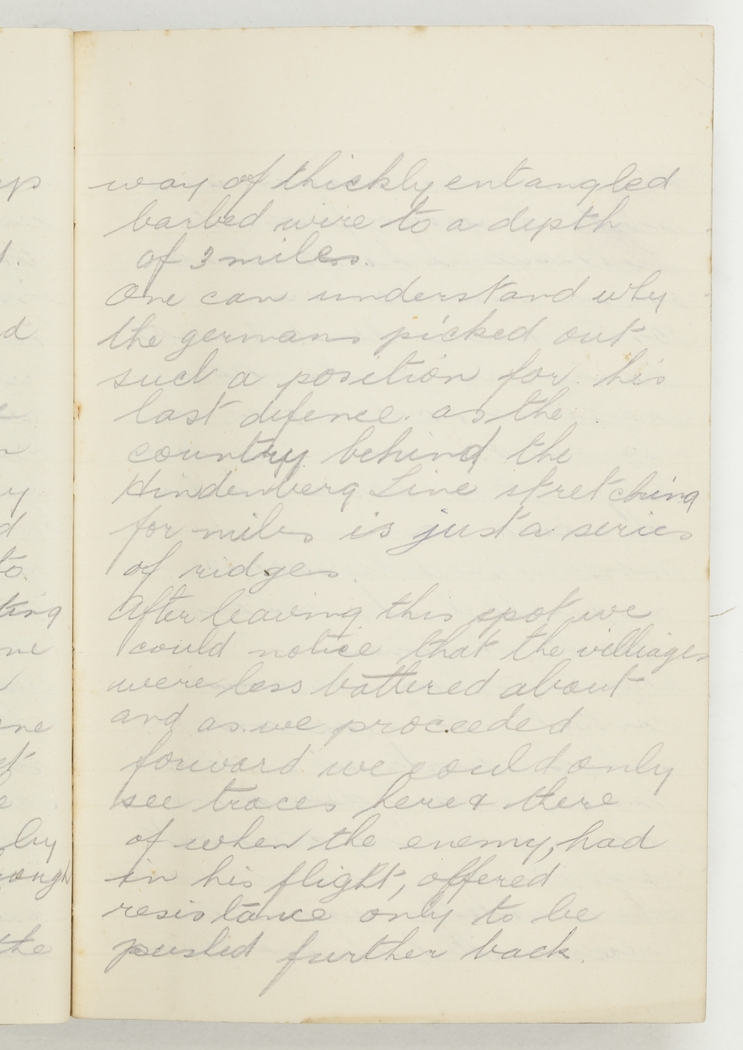 way of thickly entangled
barbed wire to a depth
of 3 miles.
One can understand why
the germans picked out
such a position for his
last difence. as the
country behind the
Hindenberg Line stretching
for miles is just a series
of ridges.
After leaving this spot we
could notice that the villiages
were less battered about
and as we proceeded
forward we could only
see traces here & there
of when the enemy, had
in his flight, offered
resistance only to be
pushed further back.